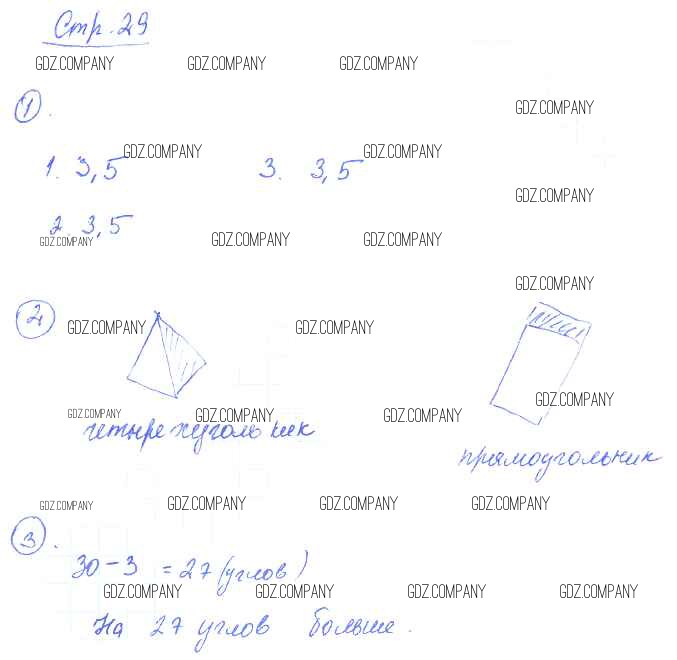 Стр. 29
GDZ.COMPANY GDZ.COMPANY GDZ.COMPANY
1. GDZ.COMPANY
1. 3,5 GDZ.COMPANY 3. 3,5 GDZ.COMPANY
GDZ.COMPANY
2. 3,5
GDZ.COMPANY GDZ.COMPANY GDZ.COMPANY
GDZ.COMPANY
2 GDZ.COMPANY GDZ.COMPANY
GDZ.COMPANY
GDZ.COMPANY GDZ.COMPANY GDZ.COMPANY
четырехугольник
прямоугольник
GDZ.COMPANY GDZ.COMPANY GDZ.COMPANY GDZ.COMPANY
3.
30-3 = 27 (углов)
GDZ.COMPANY GDZ.COMPANY GDZ.COMPANY GDZ.COMPANY
На 27 углов больше.